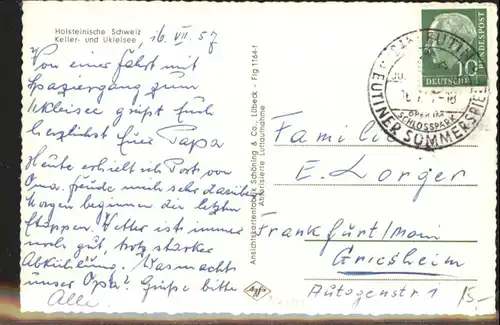 Holsteinische Schweiz
Keller- und Ukleisee
16. VII. 57
Von einer Fahrt mit
Spaziergang zum
Ukleisee grüßt Euch
herzlichst Euer Papa
Heute erhielt ich Post von
Oma, freute mich sehr darüber
Morgen beginnen die letzten
Etappen. Wetter ist immer
noch gut, trotz starker
Abkühlung. Was macht
unser Opa? Grüße bitte
Alle.
Ansichtskartenfabrik Schöning & Co., Lübeck - Flg 1164-f
Absortierte Luftaufnahme
DEUTSCHE
BUNDESPOST
10
EUTIN
EUTINER SOMMERSPIELE
OPER IM
SCHLOSSPARK
Familie
E. Lorger
Frankfurt/Main
Griesheim
Autogenstr. 1
15,-